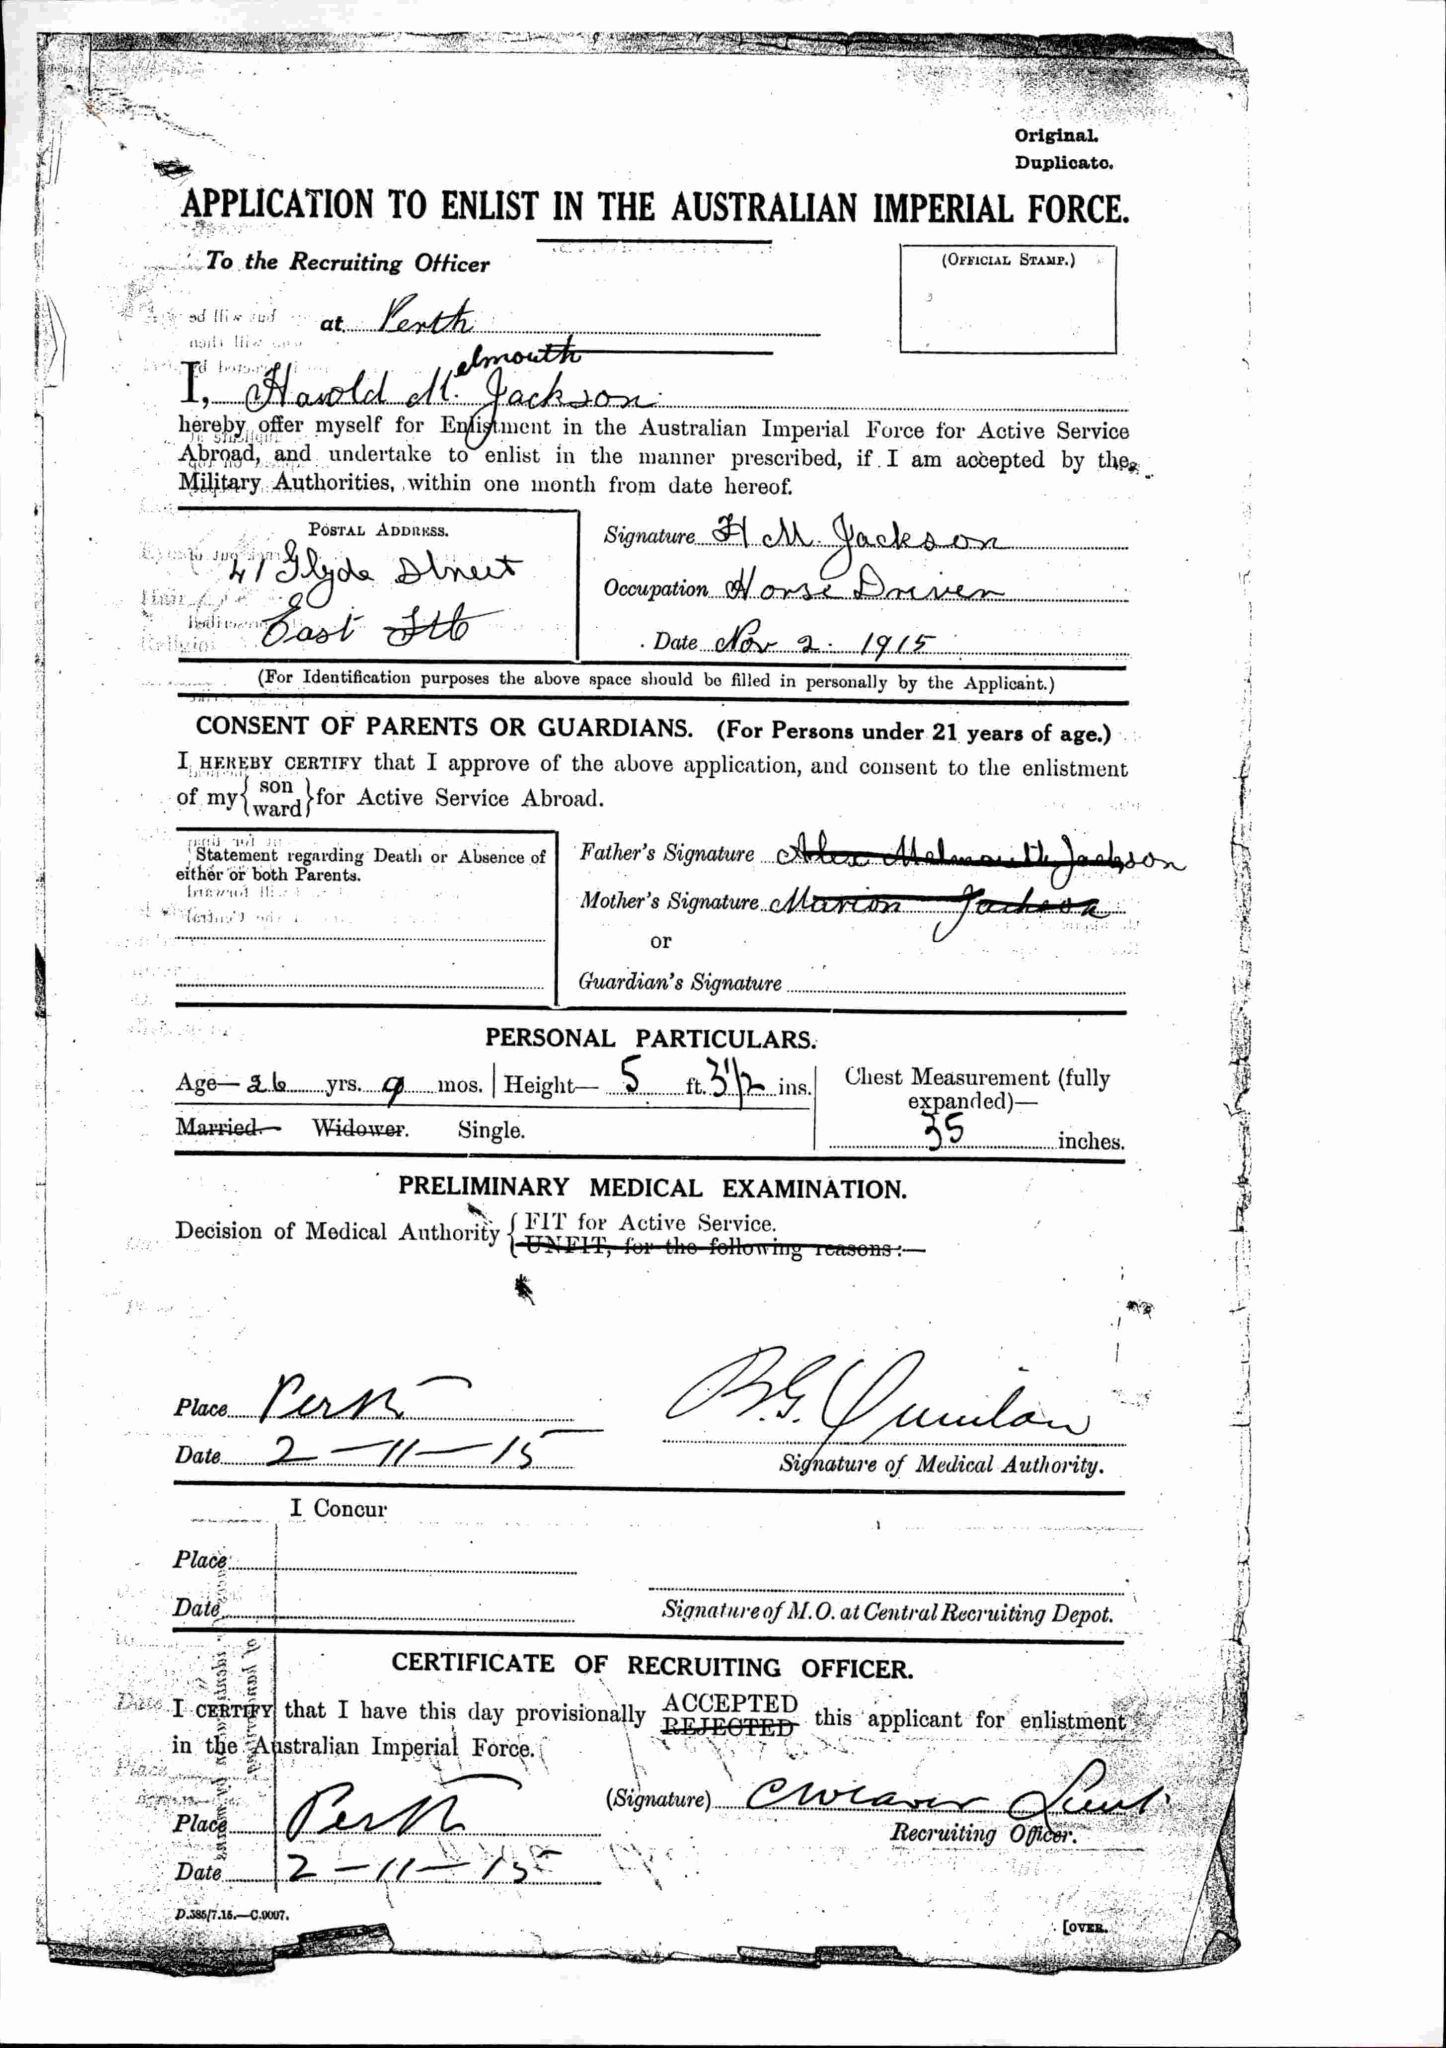 Original.
Duplicate.
APPLICATION TO ENLIST IN THE AUSTRALIAN IMPERIAL FORCE.
To the Recruiting Officer
(OFFICIAL STAMP.)
at Perth
elmouth
I, Harold M. Jackson
hereby offer myself for Enlistment in the Australian Imperial Force for Active Service
Abroad, and undertake to enlist in the manner prescribed, if I am accepted by the
Military Authorities, within one month from date hereof.
POSTAL ADDRESS.
41 Glyde Street
East Ftle
Signature H M. Jackson
Occupation Horse Driver
Date Nov 2. 1915
(For Identification purposes the above space should be filled in personally by the Applicant.)
CONSENT OF PARENTS OR GUARDIANS. (For Persons under 21 years of age.)
I HEREBY CERTIFY that I approve of the above application, and consent to the enlistment
of my { son ward } for Active Service Abroad.
Statement regarding Death or Absence of
either or both Parents.
Father's Signature Alex Melmouth Jackson
Mother's Signature Marion Jackson
or
Guardian's Signature
PERSONAL PARTICULARS.
Age— 26 yrs. 9 mos. Height— 5 ft. 3 1/2 ins.
Married. Widower. Single.
Chest Measurement (fully
expanded)—
35 inches.
PRELIMINARY MEDICAL EXAMINATION.
Decision of Medical Authority { FIT for Active Service.
UNFIT, for the following reasons:—
Place Perth
Date 2-11-15
B.G. Quinlan
Signature of Medical Authority.
I Concur
Place
Date
Signature of M.O. at Central Recruiting Depot.
CERTIFICATE OF RECRUITING OFFICER.
I CERTIFY that I have this day provisionally ACCEPTED REJECTED this applicant for enlistment
in the Australian Imperial Force.
(Signature) C Weaver Lieut.
Recruiting Officer.
Place Perth
Date 2-11-15
D.385/7.15.—C.9097.
[OVER.